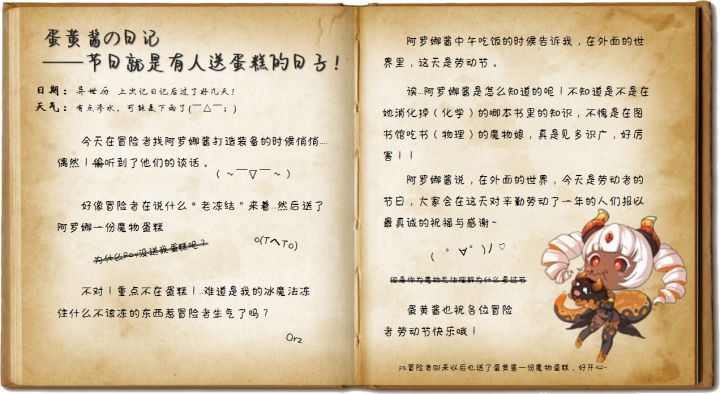 蛋黄酱の日记
——节日就是有人送蛋糕的日子！
日期：异世历 上次记日记后过了好几天！
天气：有点渗水，可能是下雨了(￣△￣；)
今天在冒险者找阿罗娜酱打造装备的时候悄悄…
偶然！偷听到了他们的谈话。
(～￣▽￣～)
好像冒险者在说什么“老冻结”来着…然后送了
阿罗娜一份魔物蛋糕
为什么Boy没送我蛋糕呢？
o(TヘTo)
不对！重点不在蛋糕！…难道是我的冰魔法冻
住什么不该冻的东西惹冒险者生气了吗？
Orz
阿罗娜酱中午吃饭的时候告诉我，在外面的世
界里，这天是劳动节。
诶…阿罗娜酱是怎么知道的呢！不知道是不是在
她消化掉（化学）的哪本书里的知识，不愧是在图
书馆吃书（物理）的魔物娘，真是见多识广，好厉
害！！
阿罗娜酱说，在外面的世界，今天是劳动者的
节日，大家会在这天对辛勤劳动了一年的人们报以
最真诚的祝福与感谢~
(゜∀゜)ﾉ♡
但是作为魔物无法理解为什么要过节
蛋黄酱也祝各位冒险
者劳动节快乐哦！
ps.冒险者回来以后也送了蛋黄酱一份魔物蛋糕，好开心~